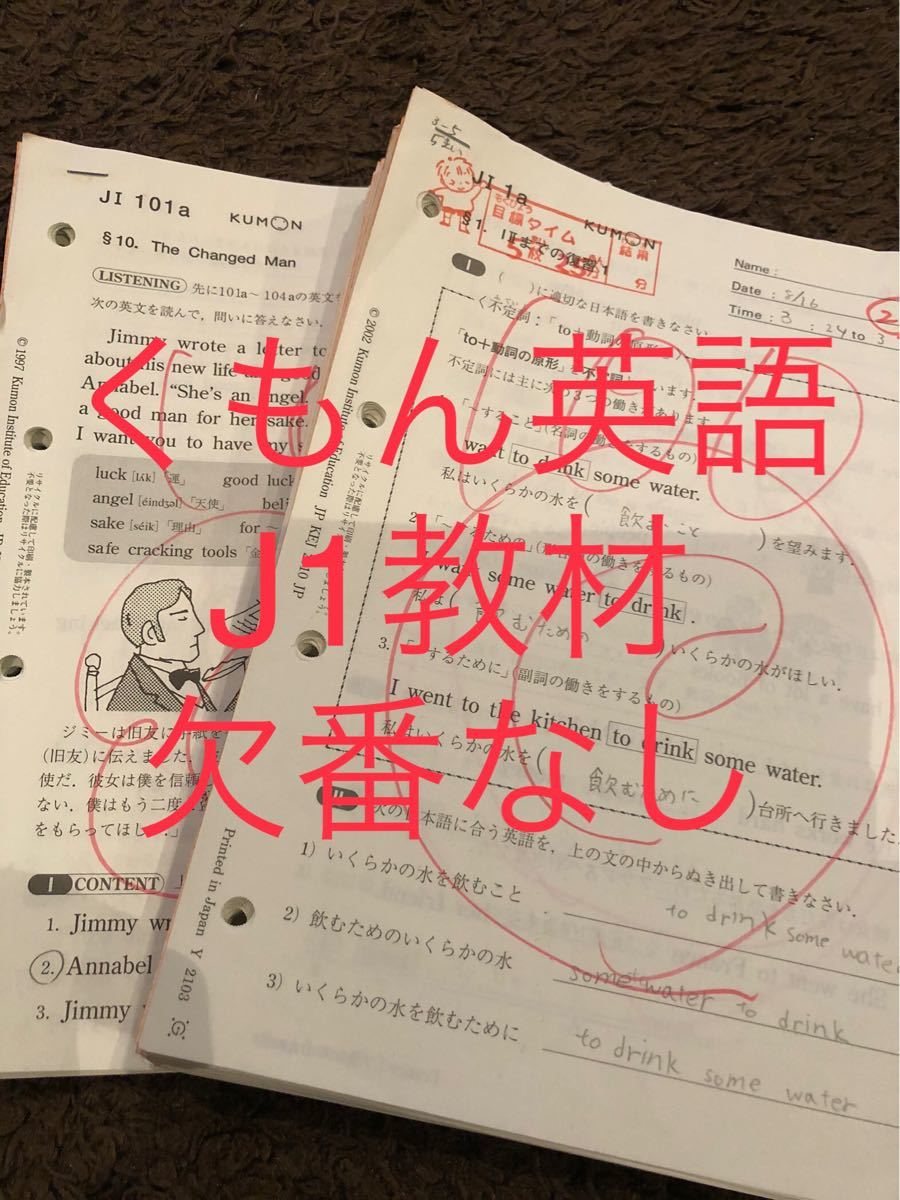 くもん英語
J1教材
欠番なし
JI 101a
KUMON
§10. The Changed Man
LISTENING 先に101a～104aの英文を
次の英文を読んで，問いに答えなさい．
Jimmy wrote a letter to
about his new life
Annabel. “She's an angel.
a good man for her sake.
I want you to have my s
luck [lʌ́k]「運」 good luck
angel [éindʒəl]「天使」 beli
sake [séik]「理由」 for ～
safe cracking tools「金
ジミーは旧友に手紙を
(旧友)に伝えました
使だ．彼女は僕を信頼
ない．僕はもう二度
をもらってほし
I CONTENT
1. Jimmy wr
2. Annabel
3. Jimmy
© 1997 Kumon Institute of Education
リサイクルに配慮して印刷・製本されています．
不要となった際はリサイクルに協力しましょう．
3-5
JI 1a
KUMON
もくひょう
目標タイム
5枚 25分
結果
分
§1. IIまでの復習1
Name :
Date : 8/16
Time : 3 : 24 to 3
2
I
( )に適切な日本語を書きなさい
〈不定詞：「to＋動詞の原形
「to＋動詞の原形」を不定詞
不定詞には主に次の3つの働きがあります
1. 「～すること」(名詞の働きをするもの)
want to drink some water.
私はいくらかの水を( 飲むこと )を望みます．
2. 「～るための」(形容詞の働きをするもの)
I want some water to drink .
私は( 飲むための )いくらかの水がほしい．
3. 「～するために」(副詞の働きをするもの)
I went to the kitchen to drink some water.
私はいくらかの水を( 飲むために )台所へ行きました
II 次の日本語に合う英語を，上の文の中からぬき出して書きなさい．
1) いくらかの水を飲むこと to drink some water
2) 飲むためのいくらかの水 some water to drink
3) いくらかの水を飲むために to drink some water
© 2002 Kumon Institute of Education JP KEI 2010 JP
Printed in Japan Y 2103
G